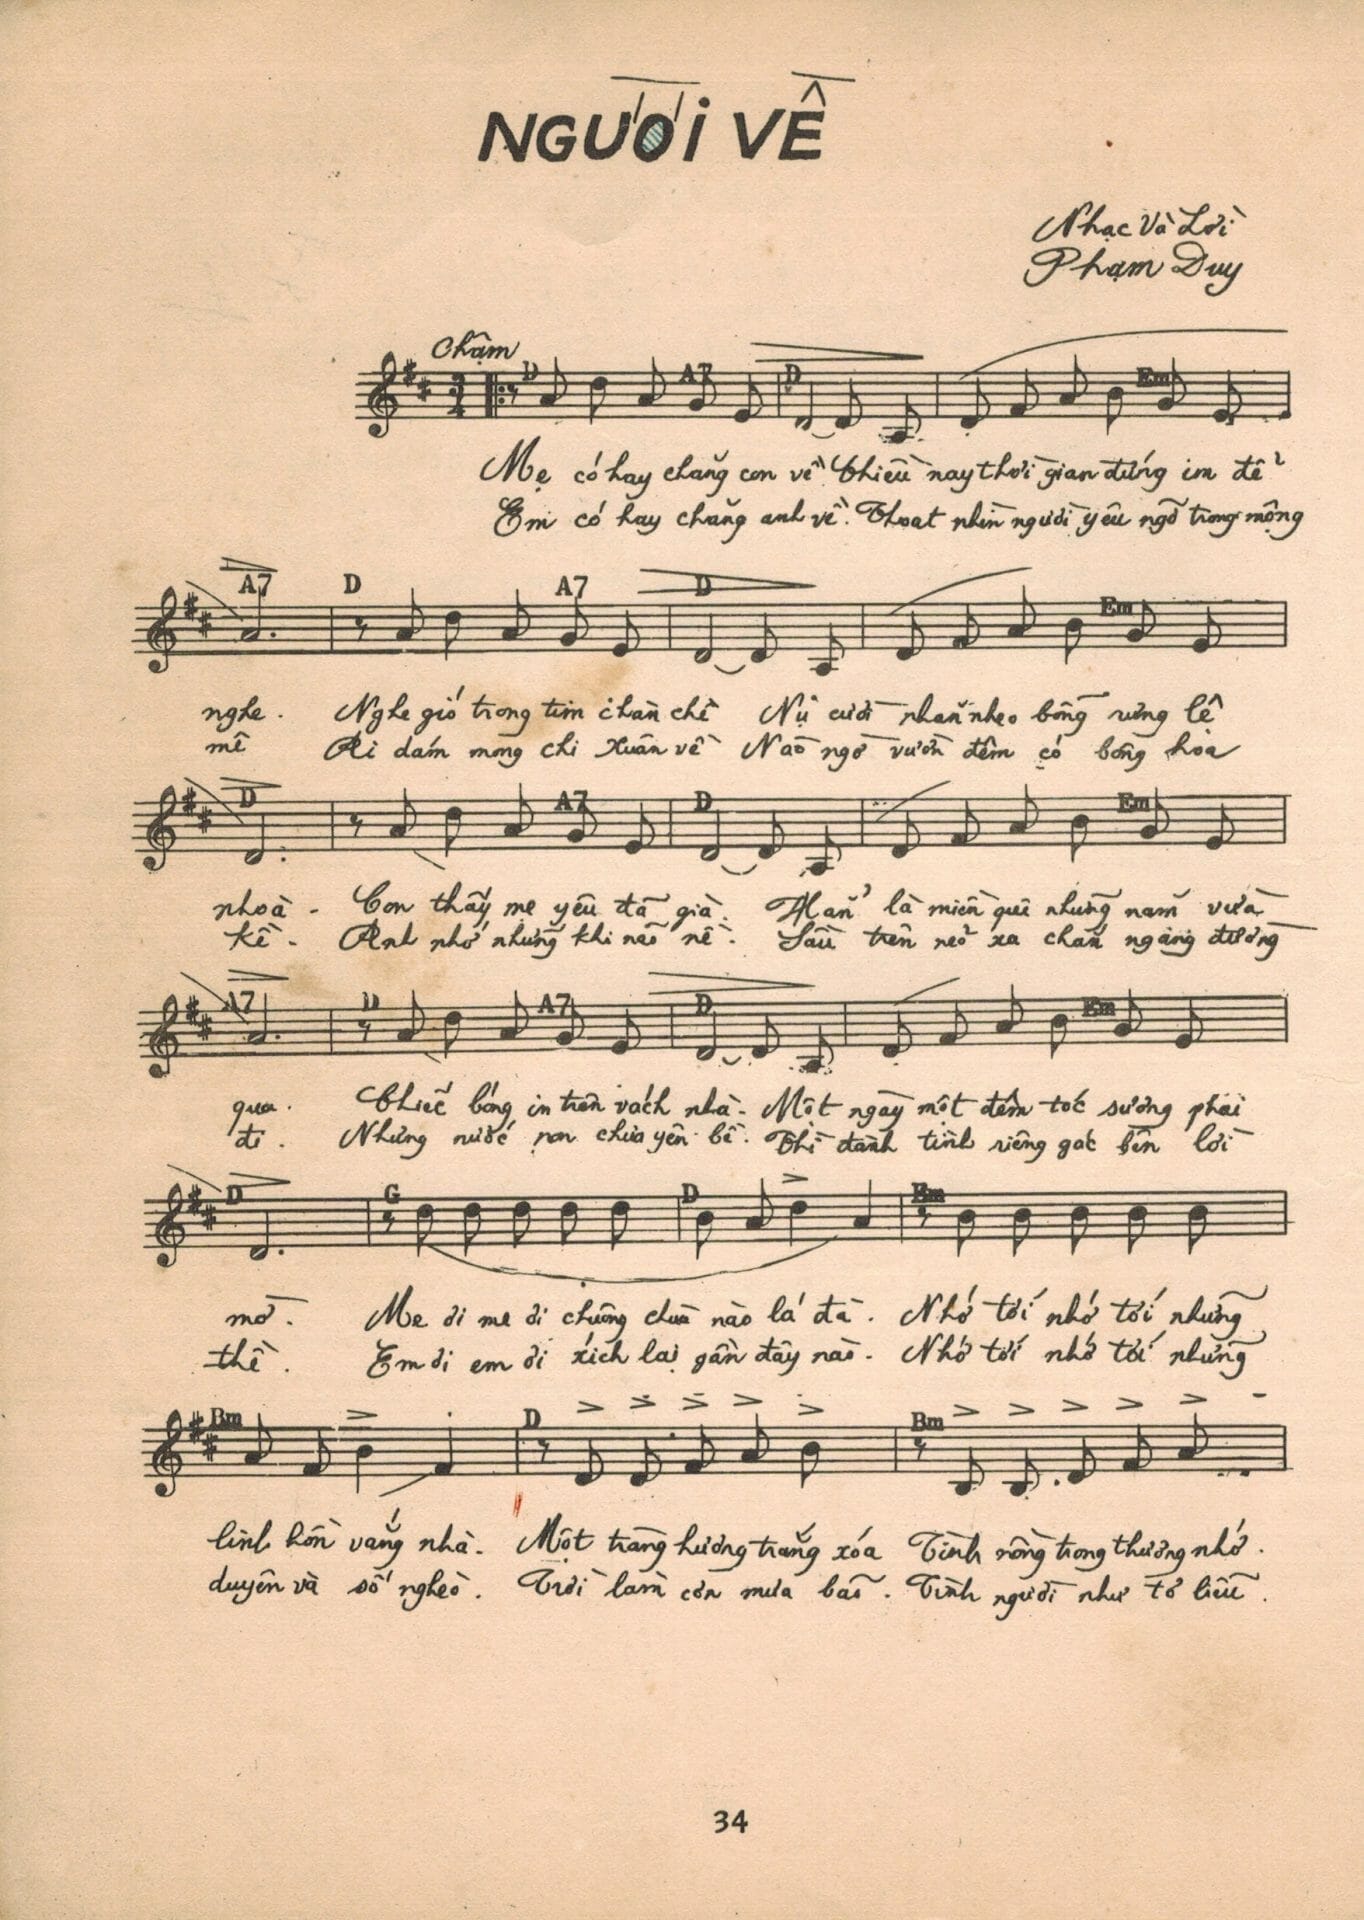 NGƯỜI VỀ
Nhạc Và Lời
Phạm Duy
Chậm
3/4
D A7 D Em
Mẹ có hay chăng con về Chiều nay thời gian đứng im để
Em có hay chăng anh về. Thoạt nhìn người yêu ngỡ trong mộng
A7 D A7 D Em
nghe. Nghe gió trong tim chan chề Nụ cười nhăn nheo bỗng rưng lệ
mê Ai dám mong chi Xuân về Nào ngờ vườn đêm có bông hoa
D A7 D Em
nhoà - Con thấy mẹ yêu đã già. Hẳn là miền quê những năm vừa
kề - Anh nhớ những khi não nề. Sầu trên nẻo xa chắn ngang đường
A7 D A7 D Em
qua. Chiếc bóng in trên vách nhà - Một ngày một đêm tóc sương phai
đi. Nhưng nước non chưa yên bề. Thì đành tình riêng gác bên lời
D G D Em
mờ. Mẹ ơi mẹ ơi chuông chùa nào lá đà. Nhớ tới nhớ tới những
thề. Em ơi em ơi xích lại gần đây nào - Nhớ tới nhớ tới những
Bm D Bm
linh hồn vắng nhà - Một tràng hương trắng xóa Tình nồng trong thương nhớ.
duyên và số nghèo. Trời làm cơn mưa bão. Tình người như tơ liễu.
34